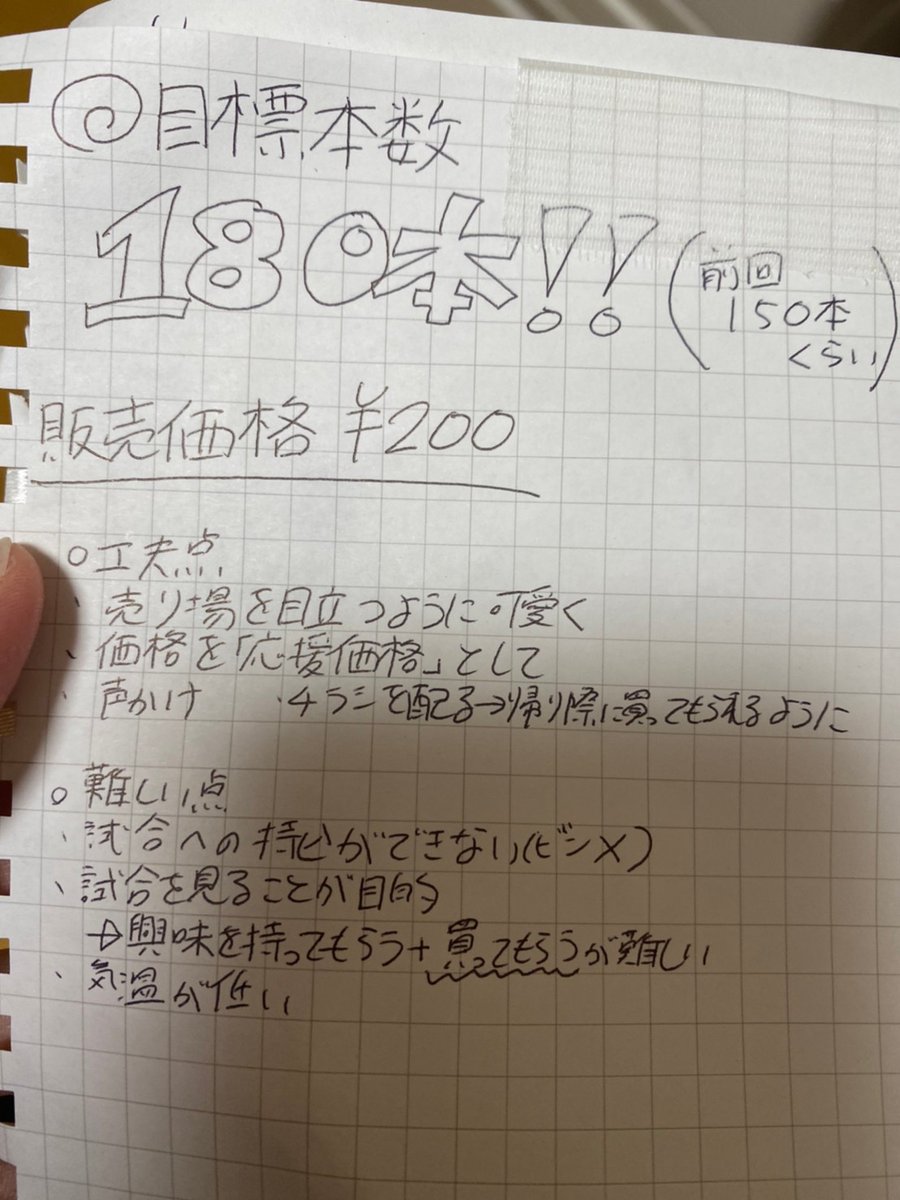 ◎目標本数
180本!!
(前回
150本
くらい)
販売価格 ¥200
○工夫点
・売り場を目立つように可愛く
・価格を「応援価格」として
・声かけ ・チラシを配る→帰り際に買ってもらえるように
○難しい点
・試合への持込ができない(ビン×)
・試合を見ることが目的
→興味を持ってもらう+買ってもらうが難しい
・気温が低い